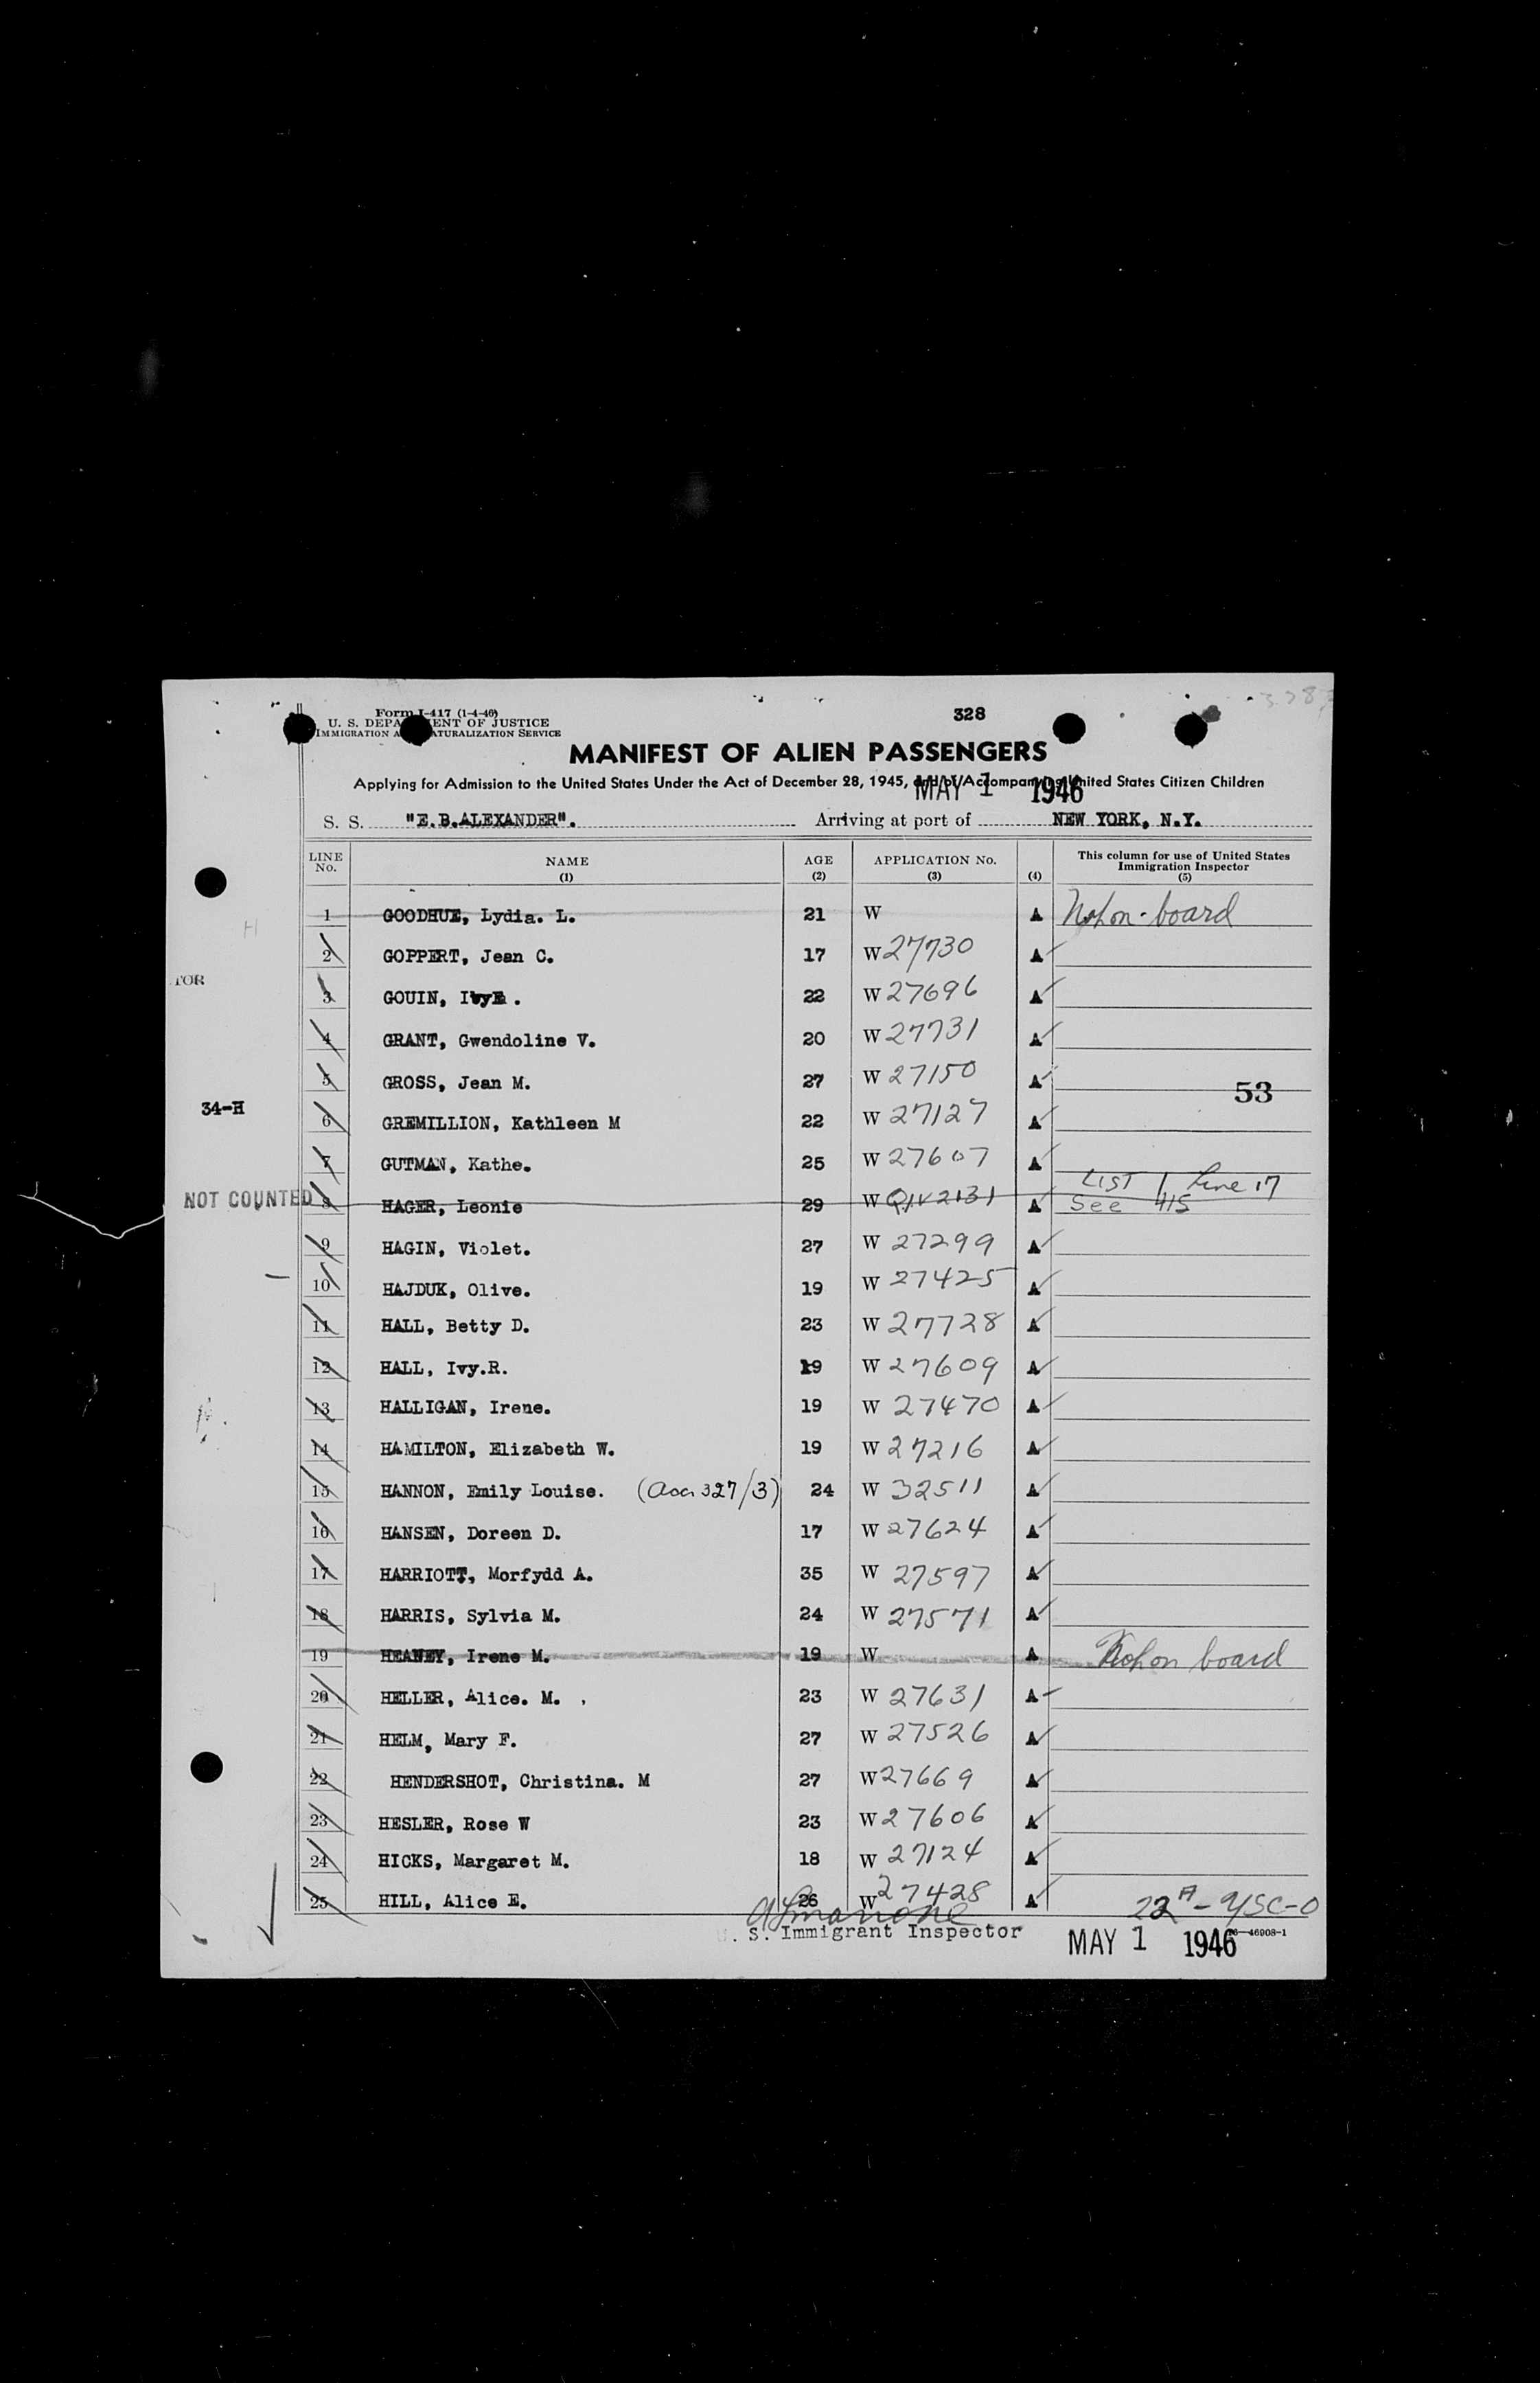 328
Form I-417 (1-4-46)
U. S. DEPARTMENT OF JUSTICE
IMMIGRATION AND NATURALIZATION SERVICE
MANIFEST OF ALIEN PASSENGERS
Applying for Admission to the United States Under the Act of December 28, 1945, and/of/Accompanying United States Citizen Children
MAY 1 1946
S. S. "E.B.ALEXANDER". Arriving at port of NEW YORK, N.Y.
LINE No. NAME (1) AGE (2) APPLICATION No. (3) (4) This column for use of United States Immigration Inspector (5)
1 GOODHUE, Lydia. L. 21 W A Not on board
2 GOPPERT, Jean C. 17 W 27730 A
TOR
3 GOUIN, Ivy . 22 W 27696 A
4 GRANT, Gwendoline V. 20 W 27731 A
5 GROSS, Jean M. 27 W 27150 A
53
34-H
6 GREMILLION, Kathleen M 22 W 27127 A
7 GUTMAN, Kathe. 25 W 27607 A
NOT COUNTED 8 HAGER, Leonie 29 W QIV2131 A See LIST 415 / Line 17
9 HAGIN, Violet. 27 W 27299 A
10 HAJDUK, Olive. 19 W 27425 A
11 HALL, Betty D. 23 W 27728 A
12 HALL, Ivy.R. 19 W 27609 A
13 HALLIGAN, Irene. 19 W 27470 A
14 HAMILTON, Elizabeth W. 19 W 27216 A
15 HANNON, Emily Louise. (327/3) 24 W 32511 A
16 HANSEN, Doreen D. 17 W 27624 A
17 HARRIOTT, Morfydd A. 35 W 27597 A
18 HARRIS, Sylvia M. 24 W 27571 A
19 HEANEY, Irene M. 19 W A Not on board
20 HELLER, Alice. M. 23 W 27631 A
21 HELM, Mary F. 27 W 27526 A
22 HENDERSHOT, Christina. M 27 W 27669 A
23 HESLER, Rose W 23 W 27606 A
24 HICKS, Margaret M. 18 W 27124 A
25 HILL, Alice E. 26 W 27428 A
22A-USC-0
U. S. Immigrant Inspector
MAY 1 1946
16—46908-1